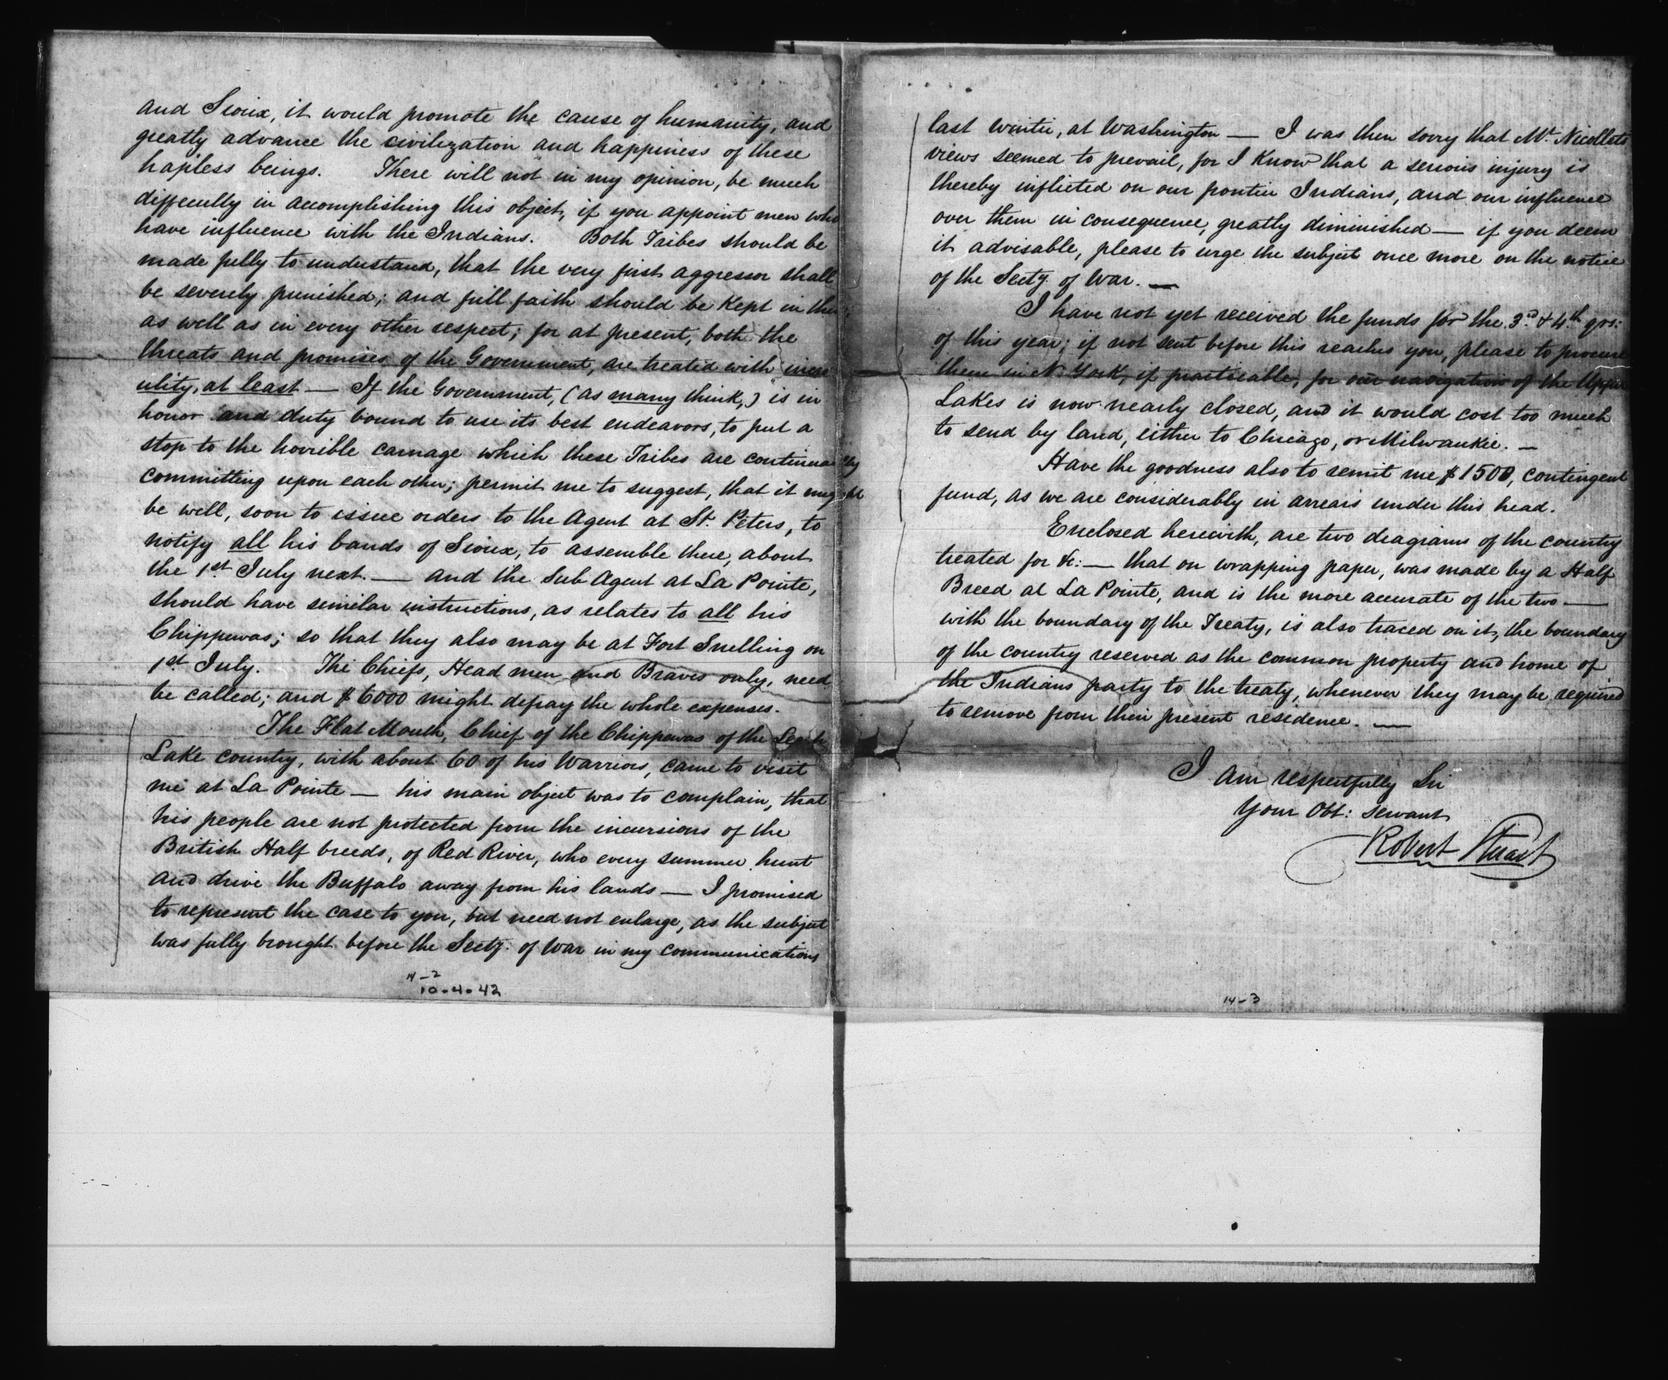 and Sioux, it would promote the cause of humanity, and
greatly advance the civilization and happiness of these
hapless beings. There will not in my opinion, be much
difficulty in accomplishing this object, if you appoint men who
have influence with the Indians. Both Tribes should be
made fully to understand, that the very first aggressor shall
be severely punished; and full faith should be kept in this
as well as in every other respect; for at present, both the
threats and promises of the Government, are treated with incred
ulity, at least — If the Government, (as many think,) is in
honor and duty bound to use its best endeavors, to put a
stop to the horrible carnage which these Tribes are continually
committing upon each other; permit me to suggest, that it might
be well, soon to issue orders to the Agent at St. Peters, to
notify all his bands of Sioux, to assemble there, about
the 1st July next. — and the Sub Agent at La Pointe,
should have similar instructions, as relates to all his
Chippewas; so that they also may be at Fort Snelling on
1st July. The Chiefs, Head men and Braves only, need
be called; and $6000 might defray the whole expenses.
The Flat Mouth, Chief of the Chippewas of the Leech
Lake country, with about 60 of his Warriors, came to visit
me at La Pointe — his main object was to complain, that
his people are not protected from the incursions of the
British Half breeds, of Red River, who every summer hunt
and drive the Buffalo away from his lands — I promised
to represent the case to you, but need not enlarge, as the subject
was fully brought before the Secty. of War in my communications
14-2
10-4-42
last winter, at Washington — I was then sorry that Mr. Nicollets
views seemed to prevail, for I know that a serious injury is
thereby inflicted on our frontier Indians, and our influence
over them in consequence, greatly diminished — if you deem
it advisable, please to urge the subject once more on the notice
of the Secty. of War. —
I have not yet received the funds for the 3rd & 4th qrs:
of this year; if not sent before this reaches you, please to procure
them in N. York, if practicable, for our navigation of the Upper
Lakes is now nearly closed, and it would cost too much
to send by land, either to Chicago, or Milwaukie. —
Have the goodness also to remit me $1500, contingent
fund, as we are considerably in arrears under this head.
Enclosed herewith, are two diagrams of the country
treated for &c: — that on wrapping paper, was made by a Half
Breed at La Pointe, and is the more accurate of the two —
with the boundary of the Treaty, is also traced on it, the boundary
of the country reserved as the common property and home of
the Indians party to the treaty, whenever they may be required
to remove from their present residence. —
I am respectfully Sir
Your Obt: servant
Robert Stuart
14-3